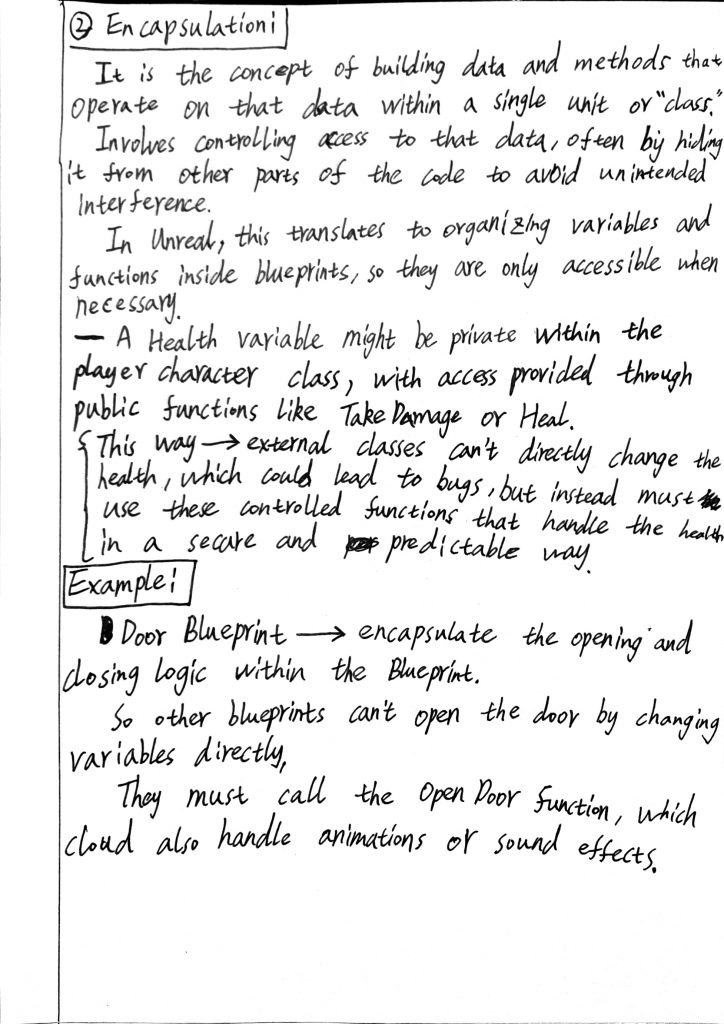 ② Encapsulation:
It is the concept of building data and methods that
operate on that data within a single unit or "class."
Involves controlling access to that data, often by hiding
it from other parts of the code to avoid unintended
Interference.
In Unreal, this translates to organizing variables and
functions inside blueprints, so they are only accessible when
necessary.
— A Health variable might be private within the
player character class, with access provided through
public functions like Take Damage or Heal.
This way → external classes can't directly change the
health, which could lead to bugs, but instead must
use these controlled functions that handle the health
in a secure and predictable way.
Example:
Door Blueprint → encapsulate the opening and
closing logic within the Blueprint.
So other blueprints can't open the door by changing
variables directly,
They must call the Open Door function, which
cloud also handle animations or sound effects.